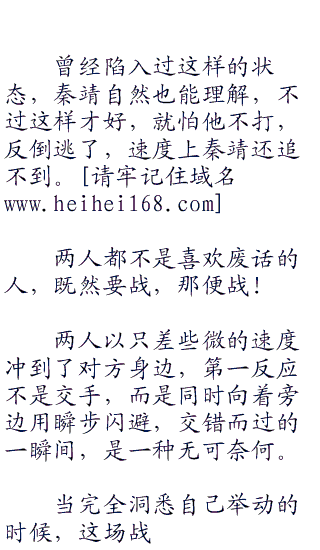 曾经陷入过这样的状
态，秦靖自然也能理解，不
过这样才好，就怕他不打，
反倒逃了，速度上秦靖还追
不到。[请牢记住域名
www.heihei168.com]
两人都不是喜欢废话的
人，既然要战，那便战！
两人以只差些微的速度
冲到了对方身边，第一反应
不是交手，而是同时向着旁
边用瞬步闪避，交错而过的
一瞬间，是一种无可奈何。
当完全洞悉自己举动的
时候，这场战